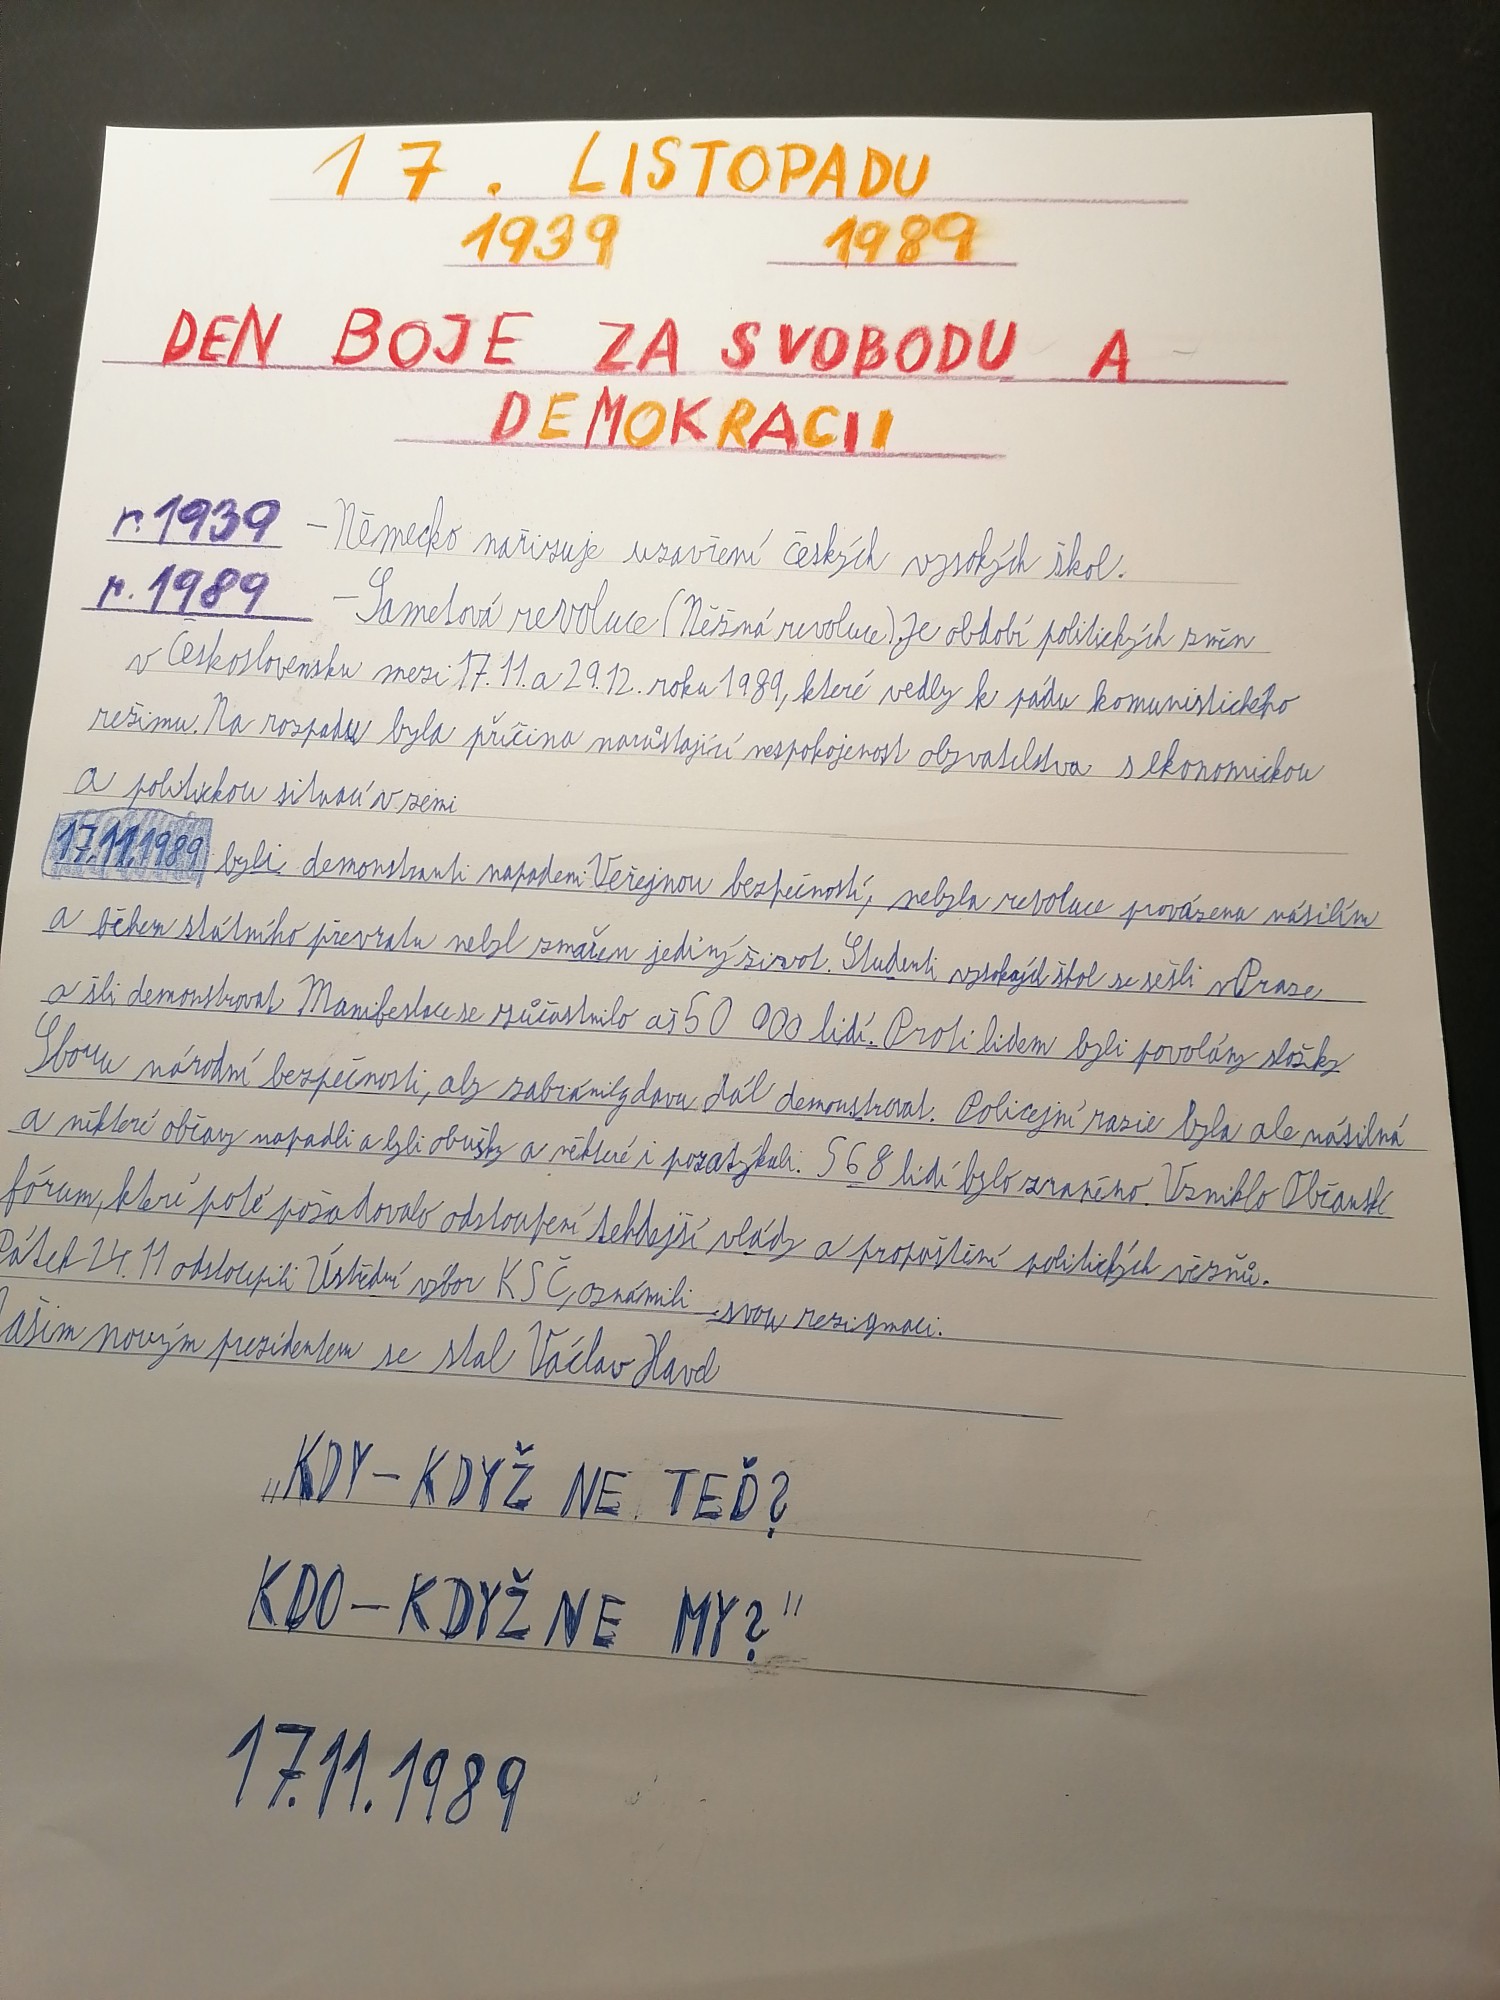 17. LISTOPADU
1939 1989
DEN BOJE ZA SVOBODU A
DEMOKRACII
r. 1939 – Německo nařizuje uzavření českých vysokých škol.
r. 1989 – Sametová revoluce (Něžná revoluce). Je období politických změn
v Československu mezi 17.11. a 29.12. roku 1989, které vedly k pádu komunistického
režimu. Na rozpadu byla příčina narůstající nespokojenost obyvatelstva s ekonomickou
a politickou situací v zemi
17.11.1989 byli demonstranti napadeni Veřejnou bezpečností, nebyla revoluce provázena násilím
a během státního převratu nebyl zmařen jediný život. Studenti vysokých škol se sešli v Praze
a šli demonstrovat. Manifestace se zúčastnilo až 50 000 lidí. Proti lidem byli povolány složky
Sboru národní bezpečnosti, aby zabránily davu dál demonstrovat. Policejní razie byla ale násilná
a některé občany napadli a byli obušky a některé i pozatýkali. 568 lidí bylo zraněno. Vzniklo Občanské
fórum, které poté požadovalo odstoupení tehdejší vlády a propuštění politických vězňů.
Pátek 24.11 odstoupili Ústřední výbor KSČ, oznámili svou rezignaci.
Našim novým prezidentem se stal Václav Havel
„KDY – KDYŽ NE TEĎ?
KDO – KDYŽ NE MY?"
17.11.1989